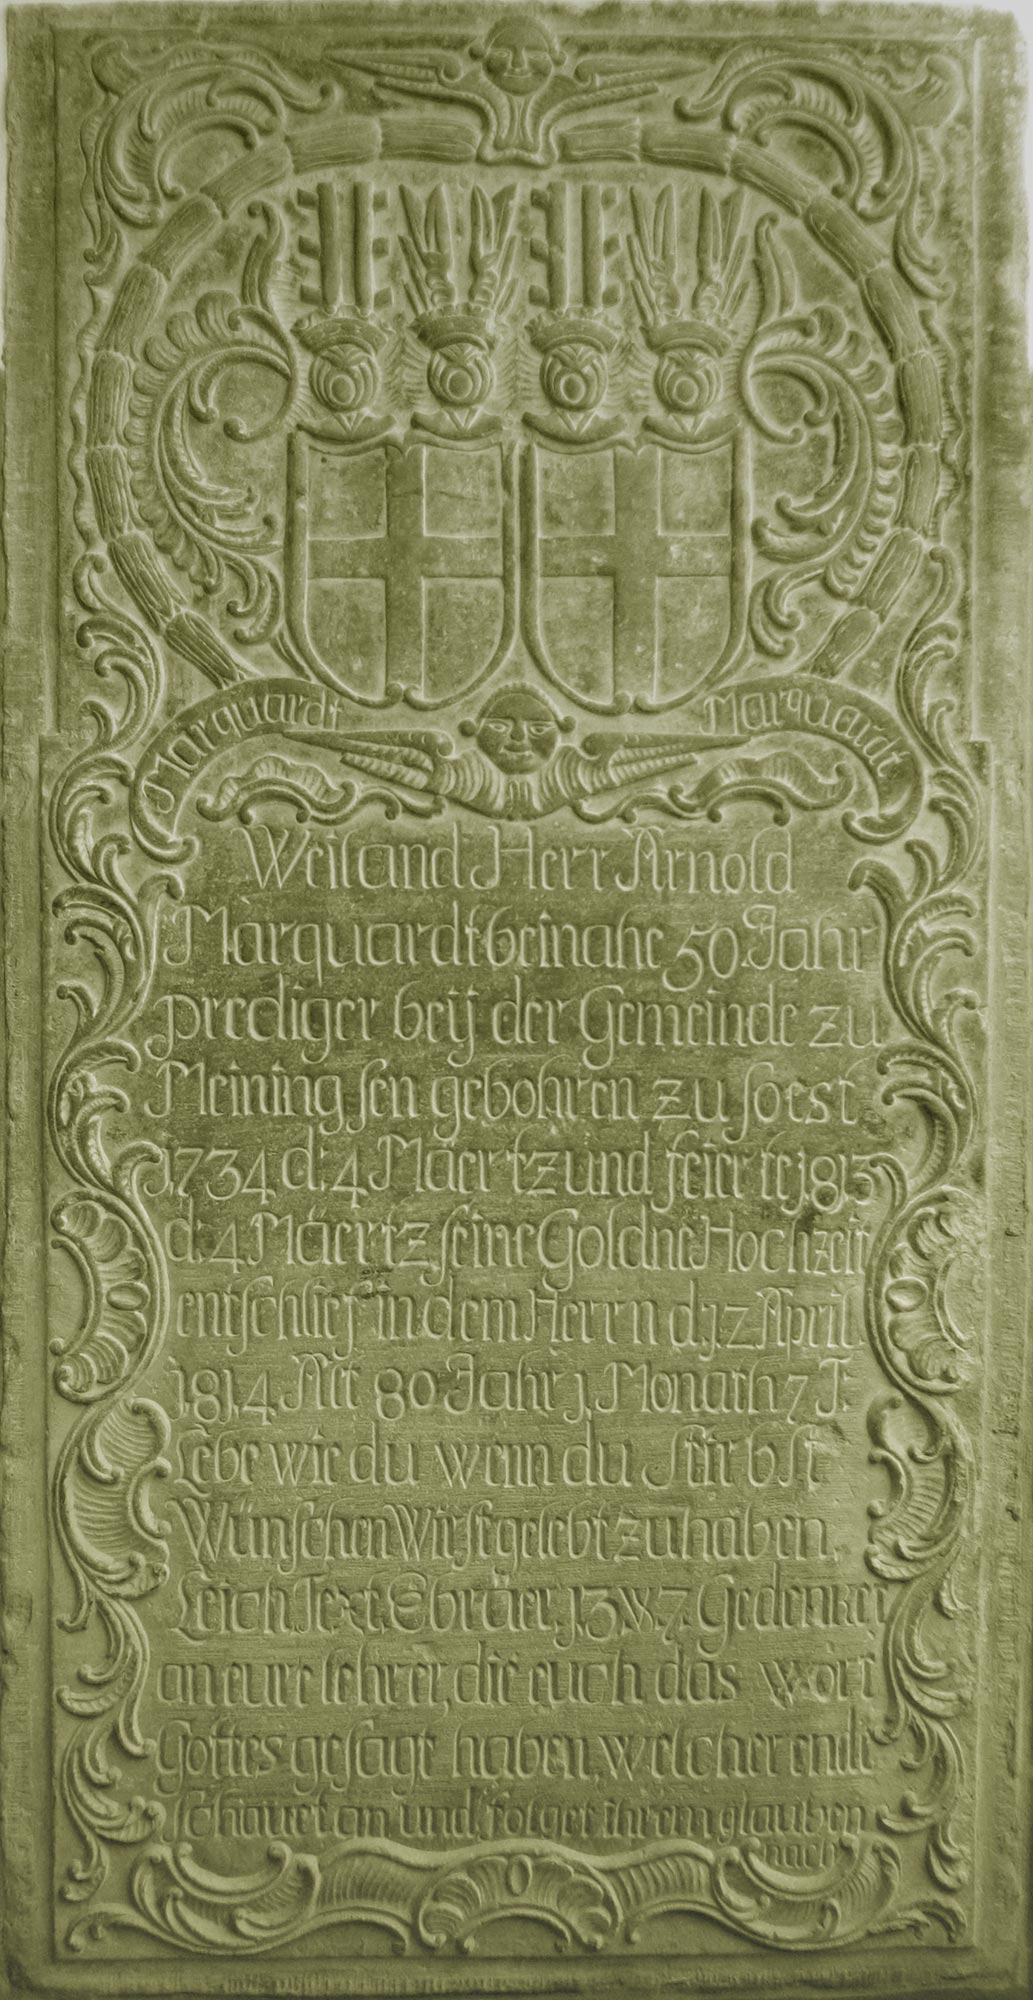 Marquardt Marquardt
Weiland Herr Arnold
Marquardt beinahe 50 Jahr
prediger beÿ der Gemeinde zu
Meiningsen gebohren zu soest
1734 d: 4 Maertz und feierte 1813
d: 4 Mäertz seine Goldne Hochzeit
entschlief in dem Herrn d 12 April
1814 Alt 80 Jahr 1 Monath 7 T:
Lebe wie du wenn du stirbst
Wünschen Wirst gelebt zu haben.
Leich Text. Ebräer. 13. W. 7. Gedenket
an eure lehrer, die euch das wort
Gottes gesagt haben, welcher ende
schauet an und folget ihrem glauben
nach